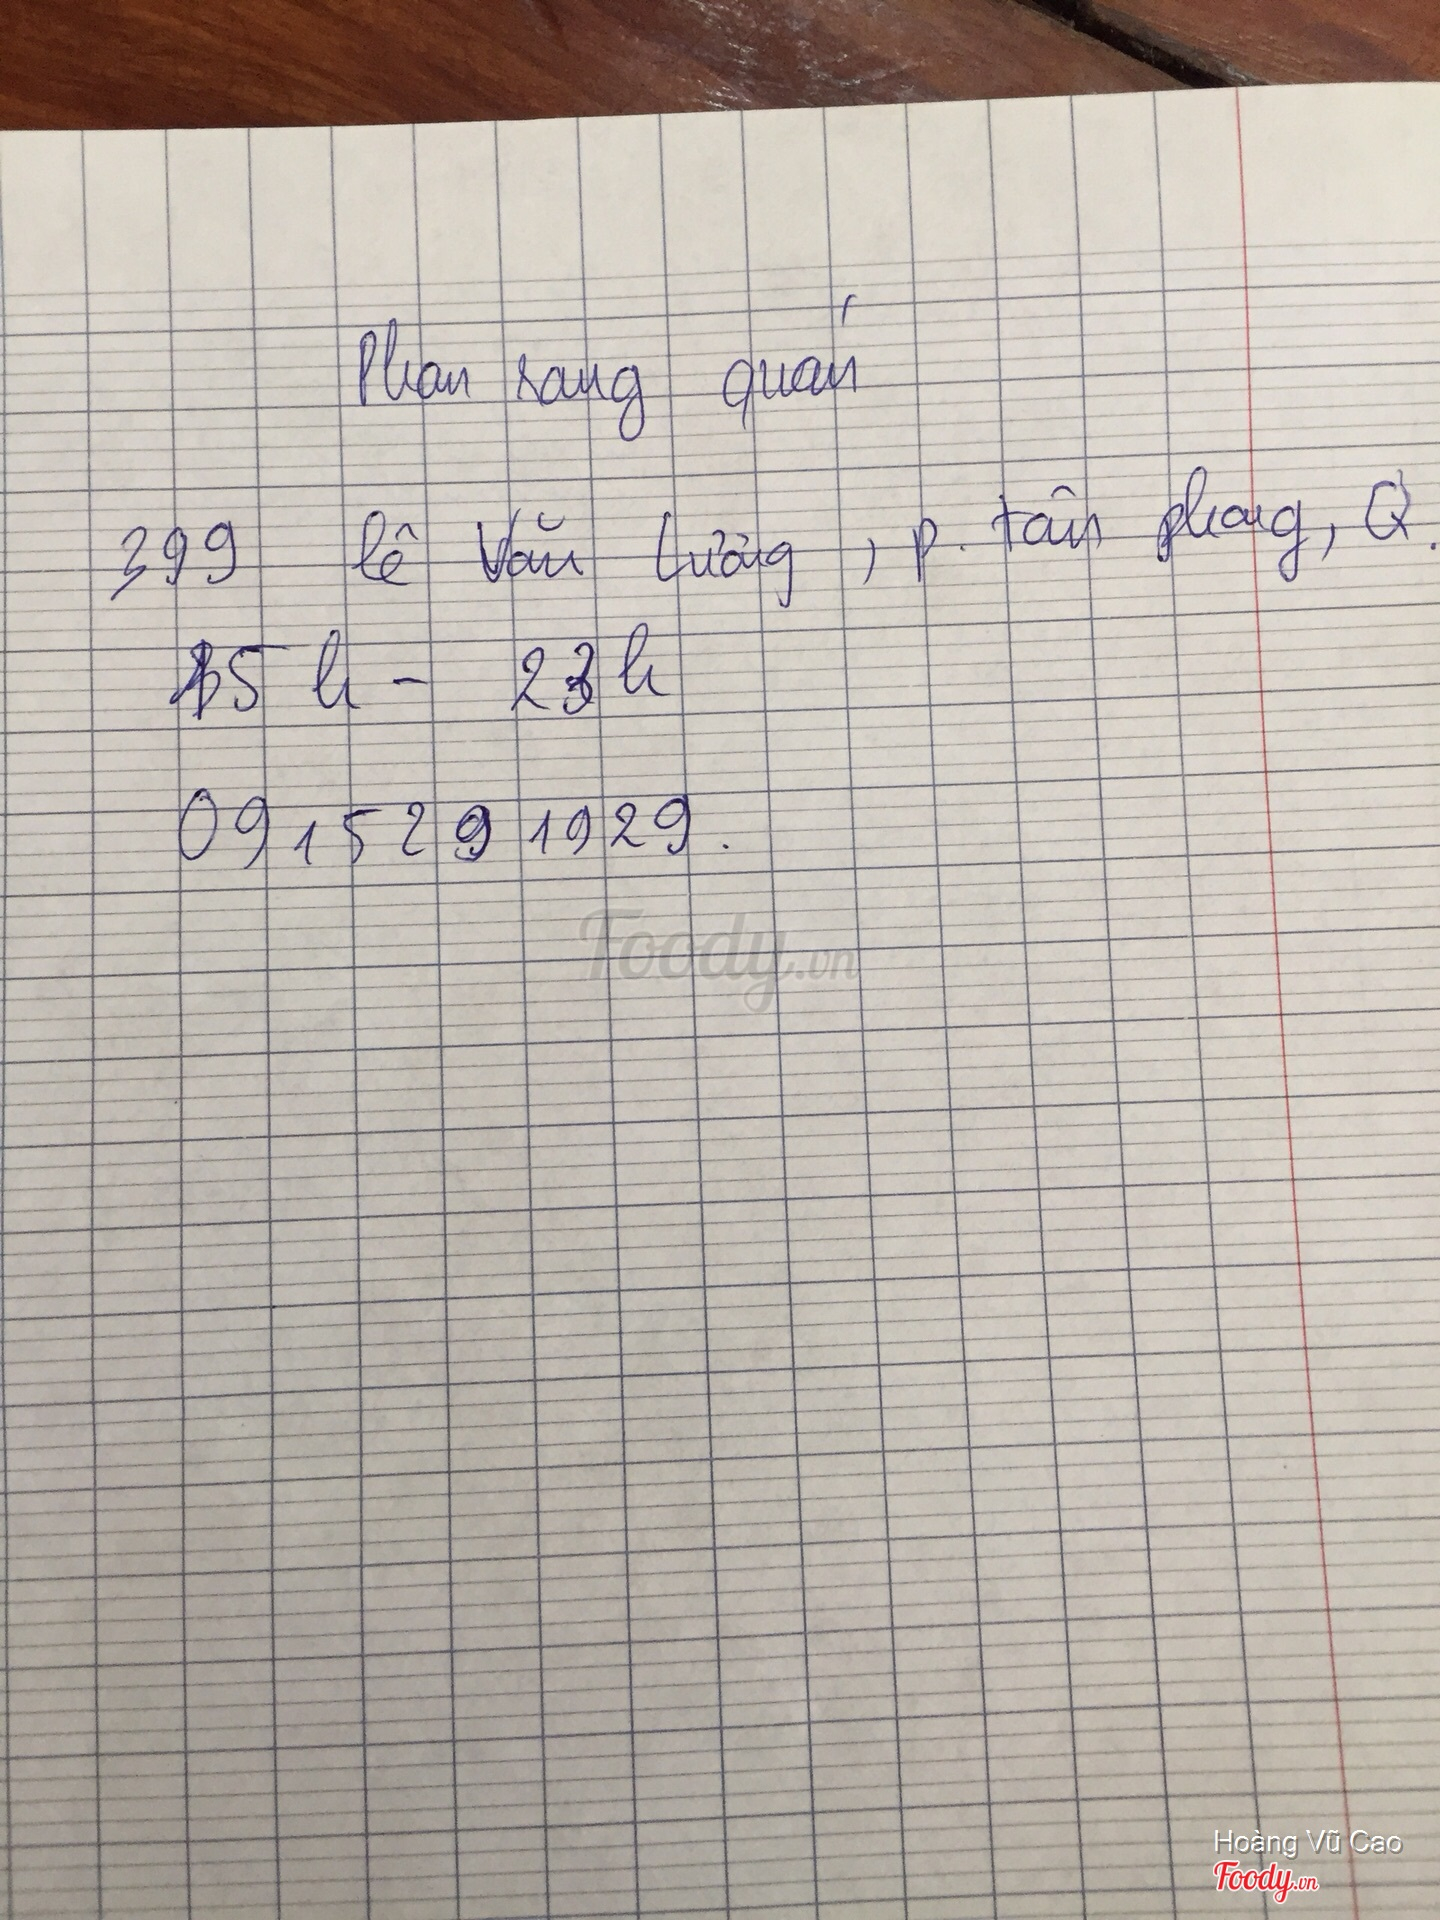 Phan rang quán
399 lê Văn Lương, p. tân phong, Q.
15h - 23h
0915291929.
Foody.vn
Hoàng Vũ Cao
Foody.vn